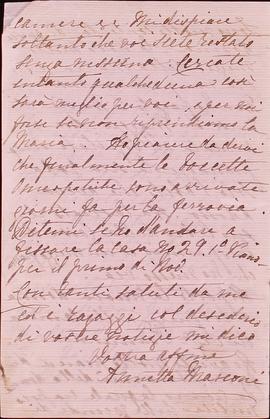 camere ec Mi dispiace
soltanto che voi siete restata
senza nessuna. Cercate
intanto qualcheduna così
sarà meglio per voi, e per noi
forse se non riprendiamo la
Maria. Ho piacere da dirvi
che finalmente le
sono arrivate
giorni fa per la ferrovia.
Ditemi se ho d'andare a
fissare la casa No 29. 1º Piano
per il primo di
Con tanti saluti da me
ed e ragazzi col desiderio
di vostre notizie mi dico
Vostra affma
Annetta Marconi